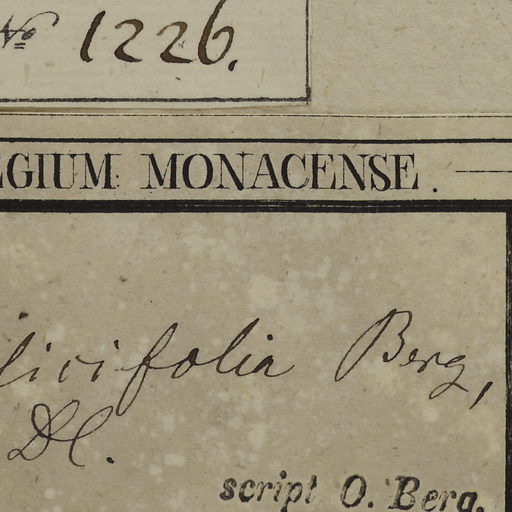 No 1226.
EGIUM MONACENSE.
licifolia Berg,
DC.
script O. Berg.